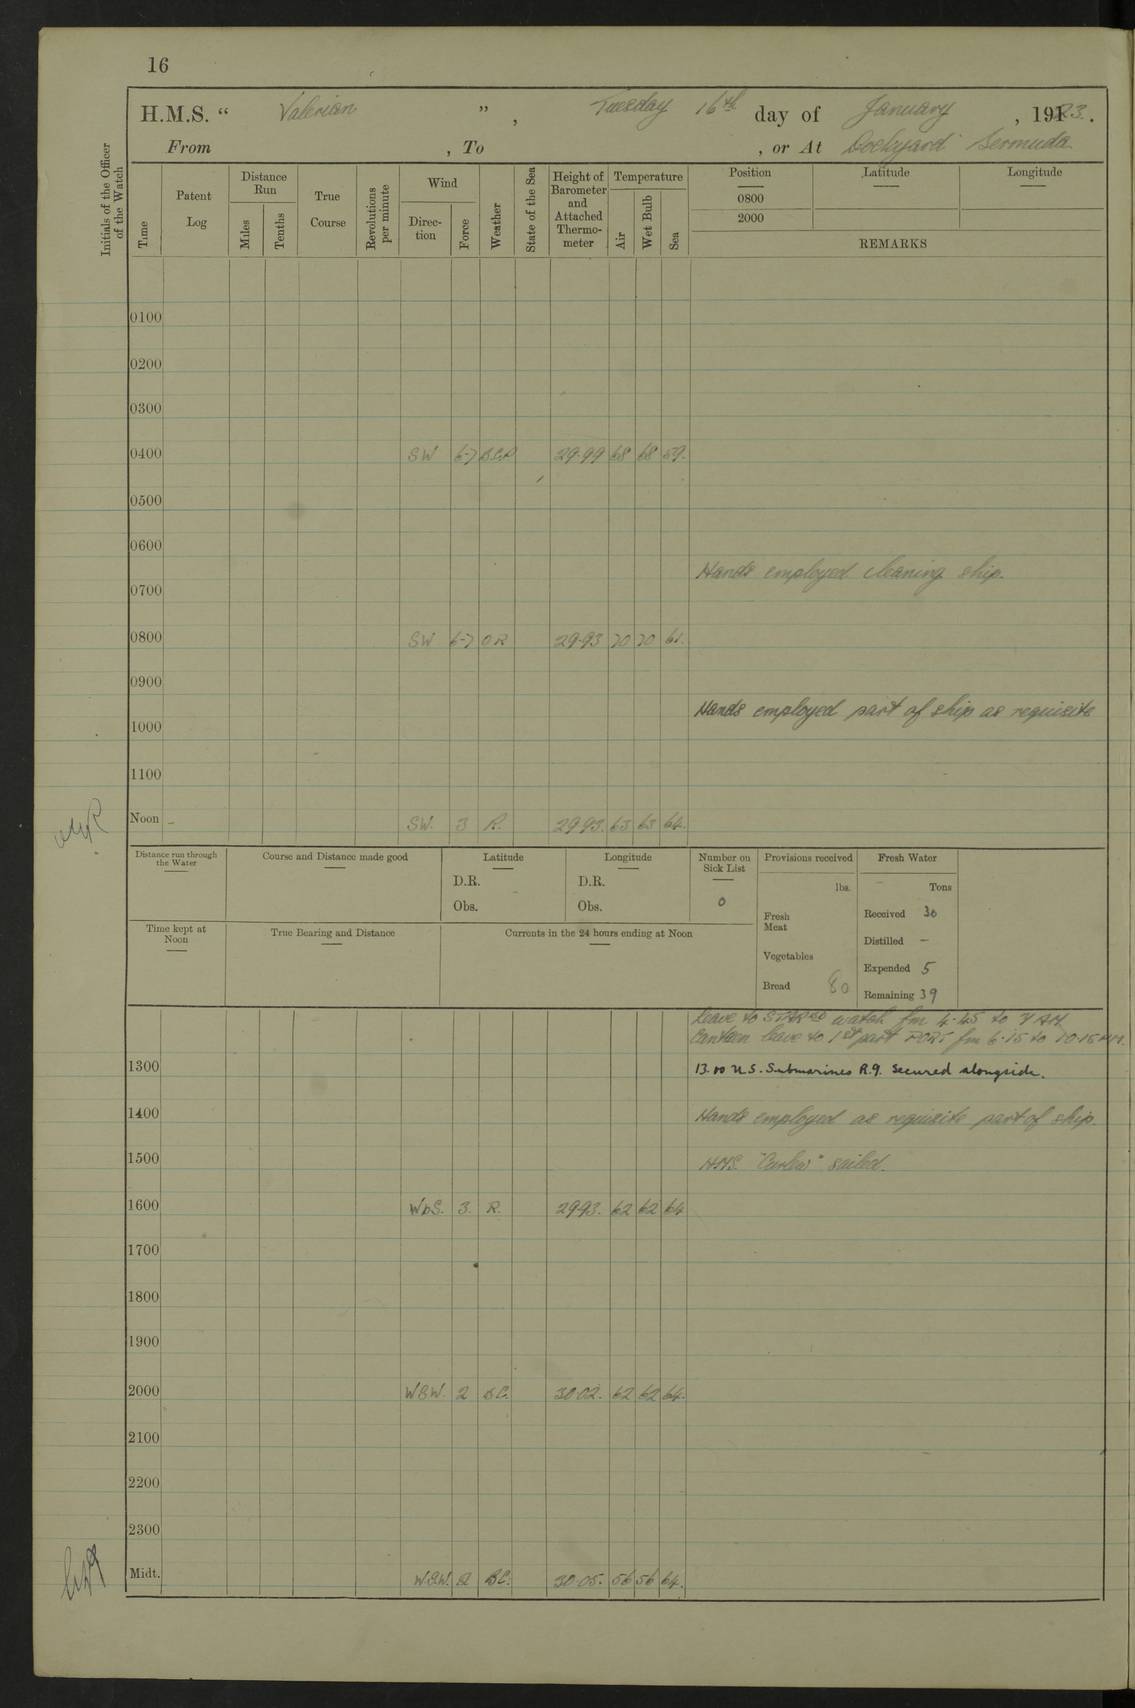 16
H.M.S. “ Valerian ” , Tuesday 16th day of January , 1923.
From , To , or At Dockyard Bermuda
Initials of the Officer of the Watch
Time
Patent Log
Distance Run
Miles
Tenths
True Course
Revolutions per minute
Wind
Direction
Force
Weather
State of the Sea
Height of Barometer and Attached Thermometer
Temperature
Air
Wet Bulb
Sea
Position Latitude Longitude
0800
2000
REMARKS
0100
0200
0300
0400 SW 6-7 29.99 68 68 59.
0500
0600
Hands employed cleaning ship.
0700
0800 SW 6-7 O R 29.93 70 70 61.
0900
Hands employed part of ship as requisite
1000
1100
Noon - SW. 3 R. 29.93. 63 63 64.
Distance run through the Water
Course and Distance made good
Latitude
D.R.
Obs.
Longitude
D.R.
Obs.
Number on Sick List
0
Provisions received
lbs.
Fresh Meat
Vegetables
Bread 80
Fresh Water
Tons
Received 30
Distilled –
Expended 5
Remaining 39
Time kept at Noon
True Bearing and Distance
Currents in the 24 hours ending at Noon
Leave to STARBD watch fm 4.45 to 7 AM.
Canteen leave to 1st part PORT fm 6.15 to 10.15 PM.
1300 13.00 U.S. Submarines R.9. Secured alongside.
1400 Hands employed as requisite part of ship.
1500 H.M.S. "Curlew" sailed.
1600 WbS. 3. R. 29.93. 62 62 64
1700
1800
1900
2000 WSW. 2 BC. 30.02. 62 62 64.
2100
2200
2300
Midt. WSW. 2 BC. 30.05. 56 56 64.